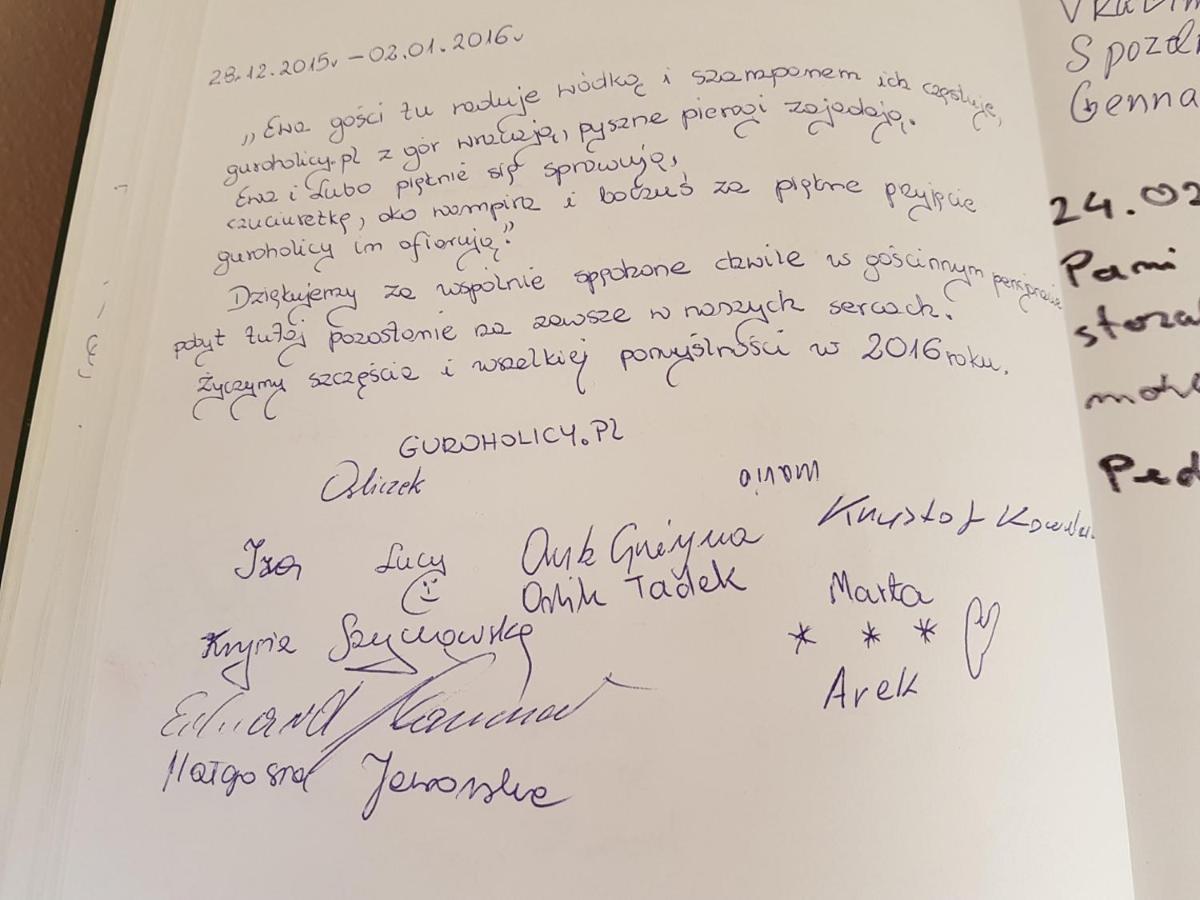 28.12.2015r – 02.01.2016r
„Ewa gości tu raduje wódką i szamponem ich częstuje,
guroholicy.pl z gór wracają, pyszne pierogi zajadają.
Ewa i Lubo pięknie się sprawują,
czuciuretkę, oko wampira i boczuś za piękne przyjęcie
guroholicy im ofiarują."
Dziękujemy za wspólnie spędzone chwile w gościnnym pensjonacie
pobyt tutaj pozostanie na zawsze w naszych sercach.
Życzymy szczęścia i wszelkiej pomyślności w 2016 roku.
GUROHOLICY.PL
Osliczek
Mario
Krzysztof
Iza Lucy
Grażyna
Oślik Tadek
Marta
* * *
Arek
Krysia
Edward
Małgosia Jaworska
24.02
Pami
Ped
Spozd
Genna